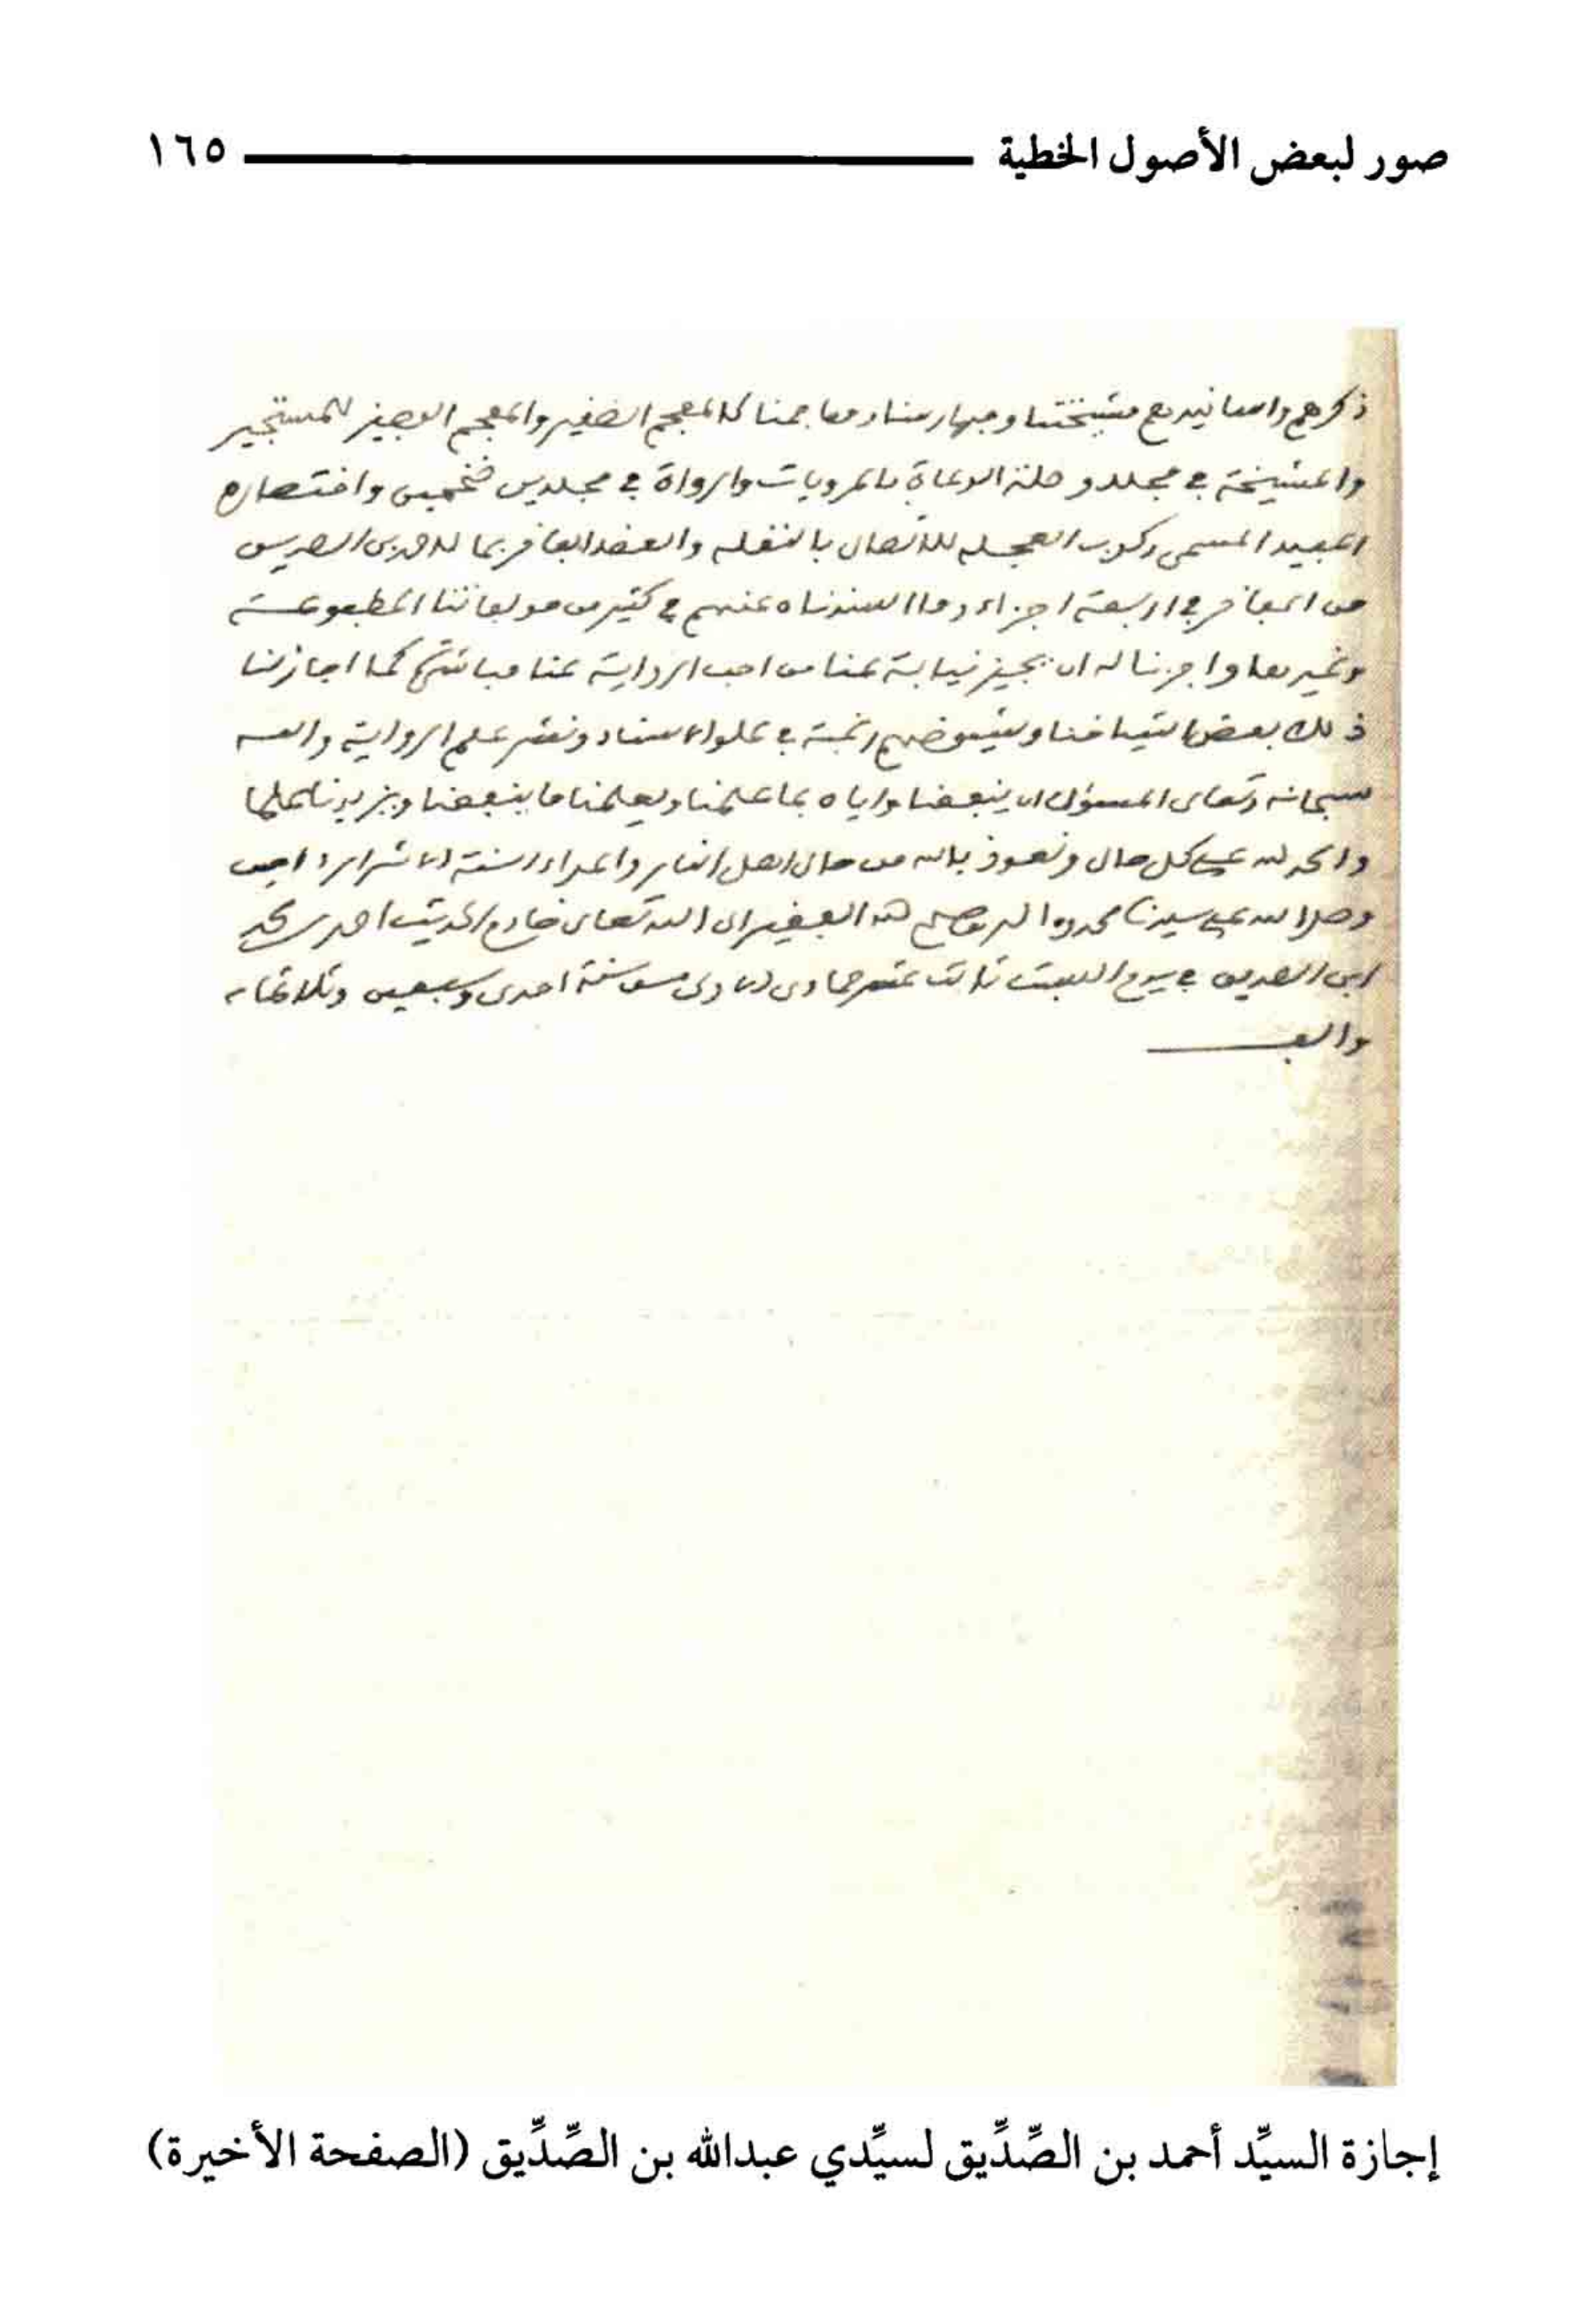 صور لبعض الأصول الخطية ١٦٥
ذكرهم واسانيدهم مشيختنا وفهارسنا ومعاجمنا كالمعجم الصغير والمعجم الوجيز للمستجير
والمشيخة في مجلد وصلة الوعاة بالمرويات والرواة في مجلدين ضخمين واختصاره
المفيد المسمى ركوب العجلة
من المفاخر في اربعة اجزاء وما اسندناه عنهم في كثير من مولفاتنا المطبوعة
وغيرها واجزنا له ان يجيز نيابة عنا من احب الرواية عنا مباشرة كما اجاز لنا
ذلك بعض اشياخنا وشيوخهم رغبة في علو الاسناد ونشر علم الرواية والله
سبحانه وتعالى المسؤل ان ينفعنا واياه بما علمنا ويعلمنا ما ينفعنا ويزيدنا علما
والحمد لله على كل حال ونعوذ بالله من حال اهل النار
وصلى الله على سيدنا محمد واله وصحبه الفقير الى الله تعالى خادم الحديث احمد بن محمد
ابن الصديق في يوم السبت ثالث عشر جمادى الاولى سنة احدى وسبعين وثلاثمائة
والف
إجازة السيِّد أحمد بن الصِّدِّيق لسيِّدي عبدالله بن الصِّدِّيق (الصفحة الأخيرة)